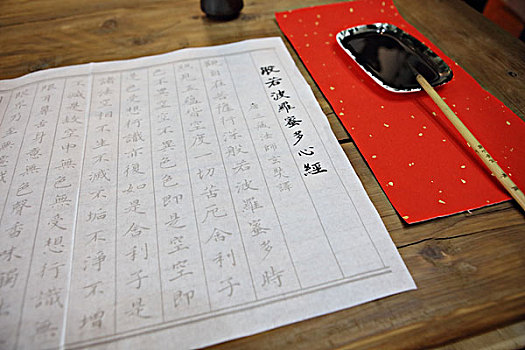 般若波羅蜜多心經
唐三藏法師玄奘譯
觀自在菩薩行深般若波羅蜜多時
照見五蘊皆空度一切苦厄舍利子
色不異空空不異色色即是空空即
是色受想行識亦復如是舍利子是
諸法空相不生不滅不垢不淨不增
不減是故空中無色無受想行識無
眼耳鼻舌身意無色聲香味觸法